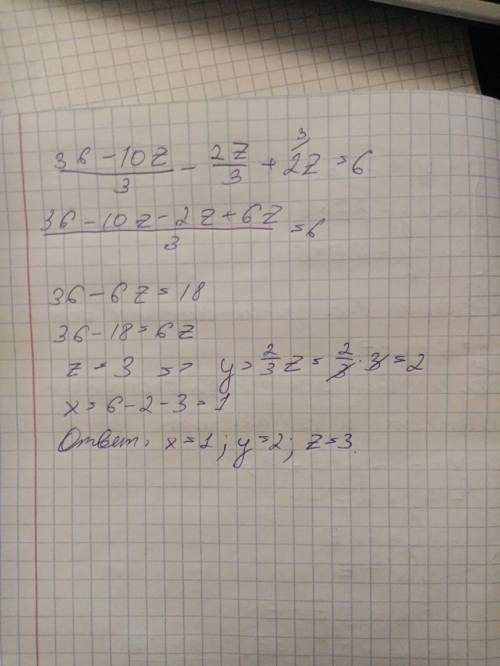 (36-10z)/3 - 2z/3 + 2z³⁄ = 6
(36-10z-2z+6z)/3 = 6
36-6z=18
36-18=6z
z=3 => y=2/3 z = 2/3 · 3 = 2
x=6-2-3=1
Ответ: x=1; y=2; z=3.